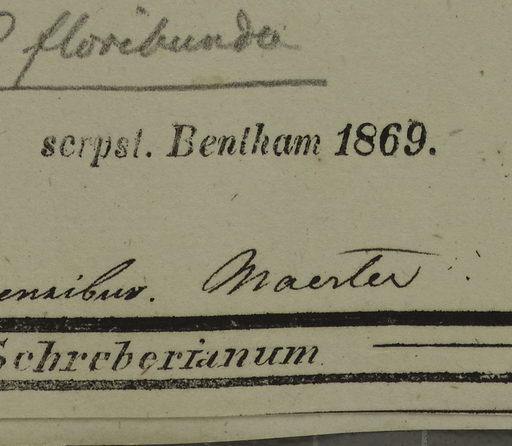 floribunda
scrpst. Bentham 1869.
ensibus. Maerter
Schreberianum